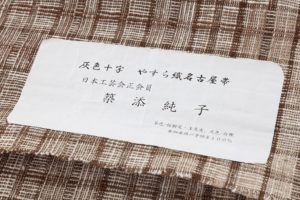 灰色十字　やすら織名古屋帯
日本工芸会正会員
築添純子